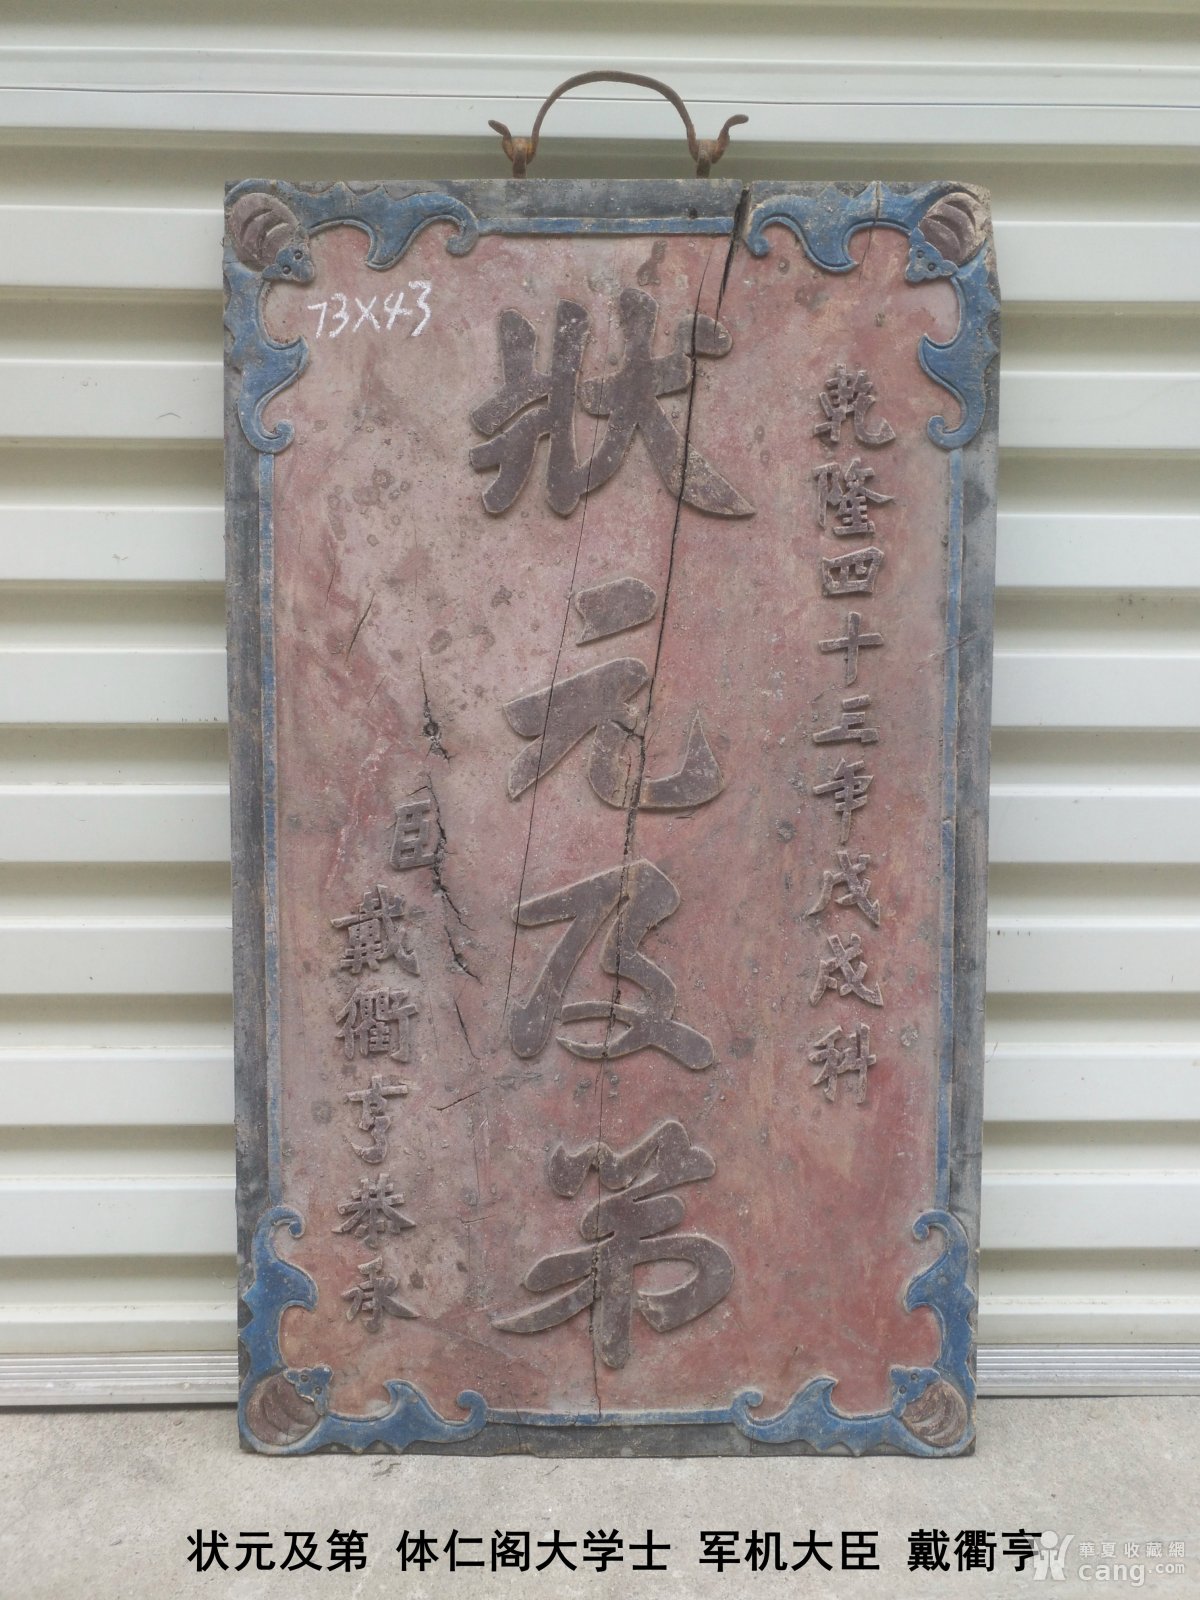 73X43
乾隆四十三年戊戌科
狀元及第
臣
戴衢亨恭承
状元及第 体仁阁大学士 军机大臣 戴衢亨
華夏收藏網
cang.com